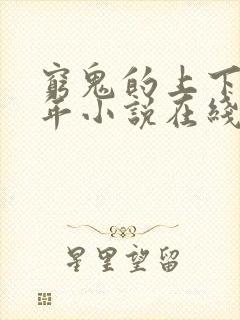 窮鬼的上下
年小說在綫
星里望留